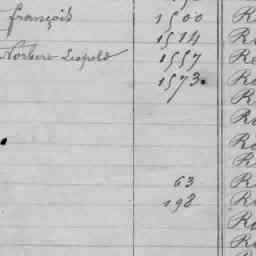 françois 1500 R
1514 R
Norbert Leopold 1557 R
1573 R
R
R
R
R
63 R
198 R
R
R